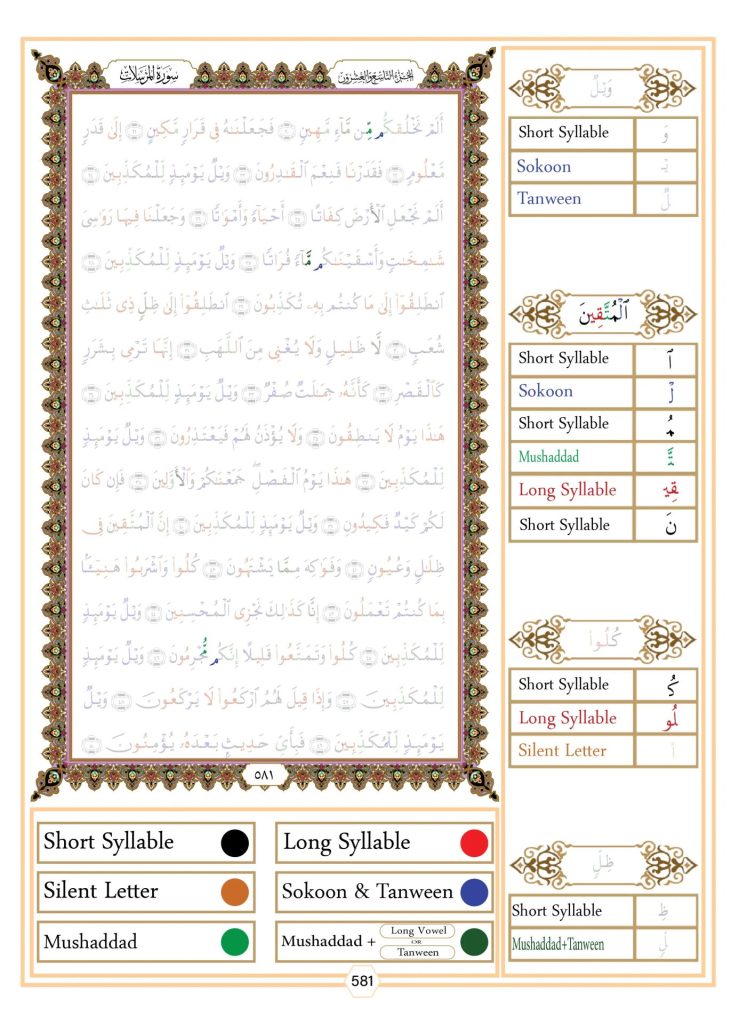 سورة المرسلات
الجزء التاسع والعشرون
أَلَمْ نَخْلُقكُّم مِّن مَّآءٍ مَّهِينٍ ۝٢٠ فَجَعَلْنَٰهُ فِى قَرَارٍ مَّكِينٍ ۝٢١ إِلَىٰ قَدَرٍ
مَّعْلُومٍ ۝٢٢ فَقَدَرْنَا فَنِعْمَ ٱلْقَٰدِرُونَ ۝٢٣ وَيْلٌ يَوْمَئِذٍ لِّلْمُكَذِّبِينَ ۝٢٤
أَلَمْ نَجْعَلِ ٱلْأَرْضَ كِفَاتًا ۝٢٥ أَحْيَآءً وَأَمْوَٰتًا ۝٢٦ وَجَعَلْنَا فِيهَا رَوَٰسِىَ
شَٰمِخَٰتٍ وَأَسْقَيْنَٰكُم مَّآءً فُرَاتًا ۝٢٧ وَيْلٌ يَوْمَئِذٍ لِّلْمُكَذِّبِينَ ۝٢٨
ٱنطَلِقُوٓا۟ إِلَىٰ مَا كُنتُم بِهِۦ تُكَذِّبُونَ ۝٢٩ ٱنطَلِقُوٓا۟ إِلَىٰ ظِلٍّ ذِى ثَلَٰثِ
شُعَبٍ ۝٣٠ لَّا ظَلِيلٍ وَلَا يُغْنِى مِنَ ٱللَّهَبِ ۝٣١ إِنَّهَا تَرْمِى بِشَرَرٍ
كَٱلْقَصْرِ ۝٣٢ كَأَنَّهُۥ جِمَٰلَتٌ صُفْرٌ ۝٣٣ وَيْلٌ يَوْمَئِذٍ لِّلْمُكَذِّبِينَ ۝٣٤
هَٰذَا يَوْمُ لَا يَنطِقُونَ ۝٣٥ وَلَا يُؤْذَنُ لَهُمْ فَيَعْتَذِرُونَ ۝٣٦ وَيْلٌ يَوْمَئِذٍ
لِّلْمُكَذِّبِينَ ۝٣٧ هَٰذَا يَوْمُ ٱلْفَصْلِ ۖ جَمَعْنَٰكُمْ وَٱلْأَوَّلِينَ ۝٣٨ فَإِن كَانَ
لَكُمْ كَيْدٌ فَكِيدُونِ ۝٣٩ وَيْلٌ يَوْمَئِذٍ لِّلْمُكَذِّبِينَ ۝٤٠ إِنَّ ٱلْمُتَّقِينَ فِى
ظِلَٰلٍ وَعُيُونٍ ۝٤١ وَفَوَٰكِهَ مِمَّا يَشْتَهُونَ ۝٤٢ كُلُوا۟ وَٱشْرَبُوا۟ هَنِيٓـًٔۢا
بِمَا كُنتُمْ تَعْمَلُونَ ۝٤٣ إِنَّا كَذَٰلِكَ نَجْزِى ٱلْمُحْسِنِينَ ۝٤٤ وَيْلٌ يَوْمَئِذٍ
لِّلْمُكَذِّبِينَ ۝٤٥ كُلُوا۟ وَتَمَتَّعُوا۟ قَلِيلًا إِنَّكُم مُّجْرِمُونَ ۝٤٦ وَيْلٌ يَوْمَئِذٍ
لِّلْمُكَذِّبِينَ ۝٤٧ وَإِذَا قِيلَ لَهُمُ ٱرْكَعُوا۟ لَا يَرْكَعُونَ ۝٤٨ وَيْلٌ
يَوْمَئِذٍ لِّلْمُكَذِّبِينَ ۝٤٩ فَبِأَىِّ حَدِيثٍۭ بَعْدَهُۥ يُؤْمِنُونَ ۝٥٠
٥٨١
وَيْلٌ
Short Syllable وَ
Sokoon يْـ
Tanween لٌ
ٱلْمُتَّقِينَ
Short Syllable ٱَ
Sokoon لْ
Short Syllable مُ
Mushaddad تَّ
Long Syllable قِيـ
Short Syllable نَ
كُلُوا۟
Short Syllable كُ
Long Syllable لُو
Silent Letter ا
ظِلٍّ
Short Syllable ظِ
Mushaddad+Tanween لٍّ
Short Syllable
Long Syllable
Silent Letter
Sokoon & Tanween
Mushaddad
Mushaddad + Long Vowel OR Tanween
581